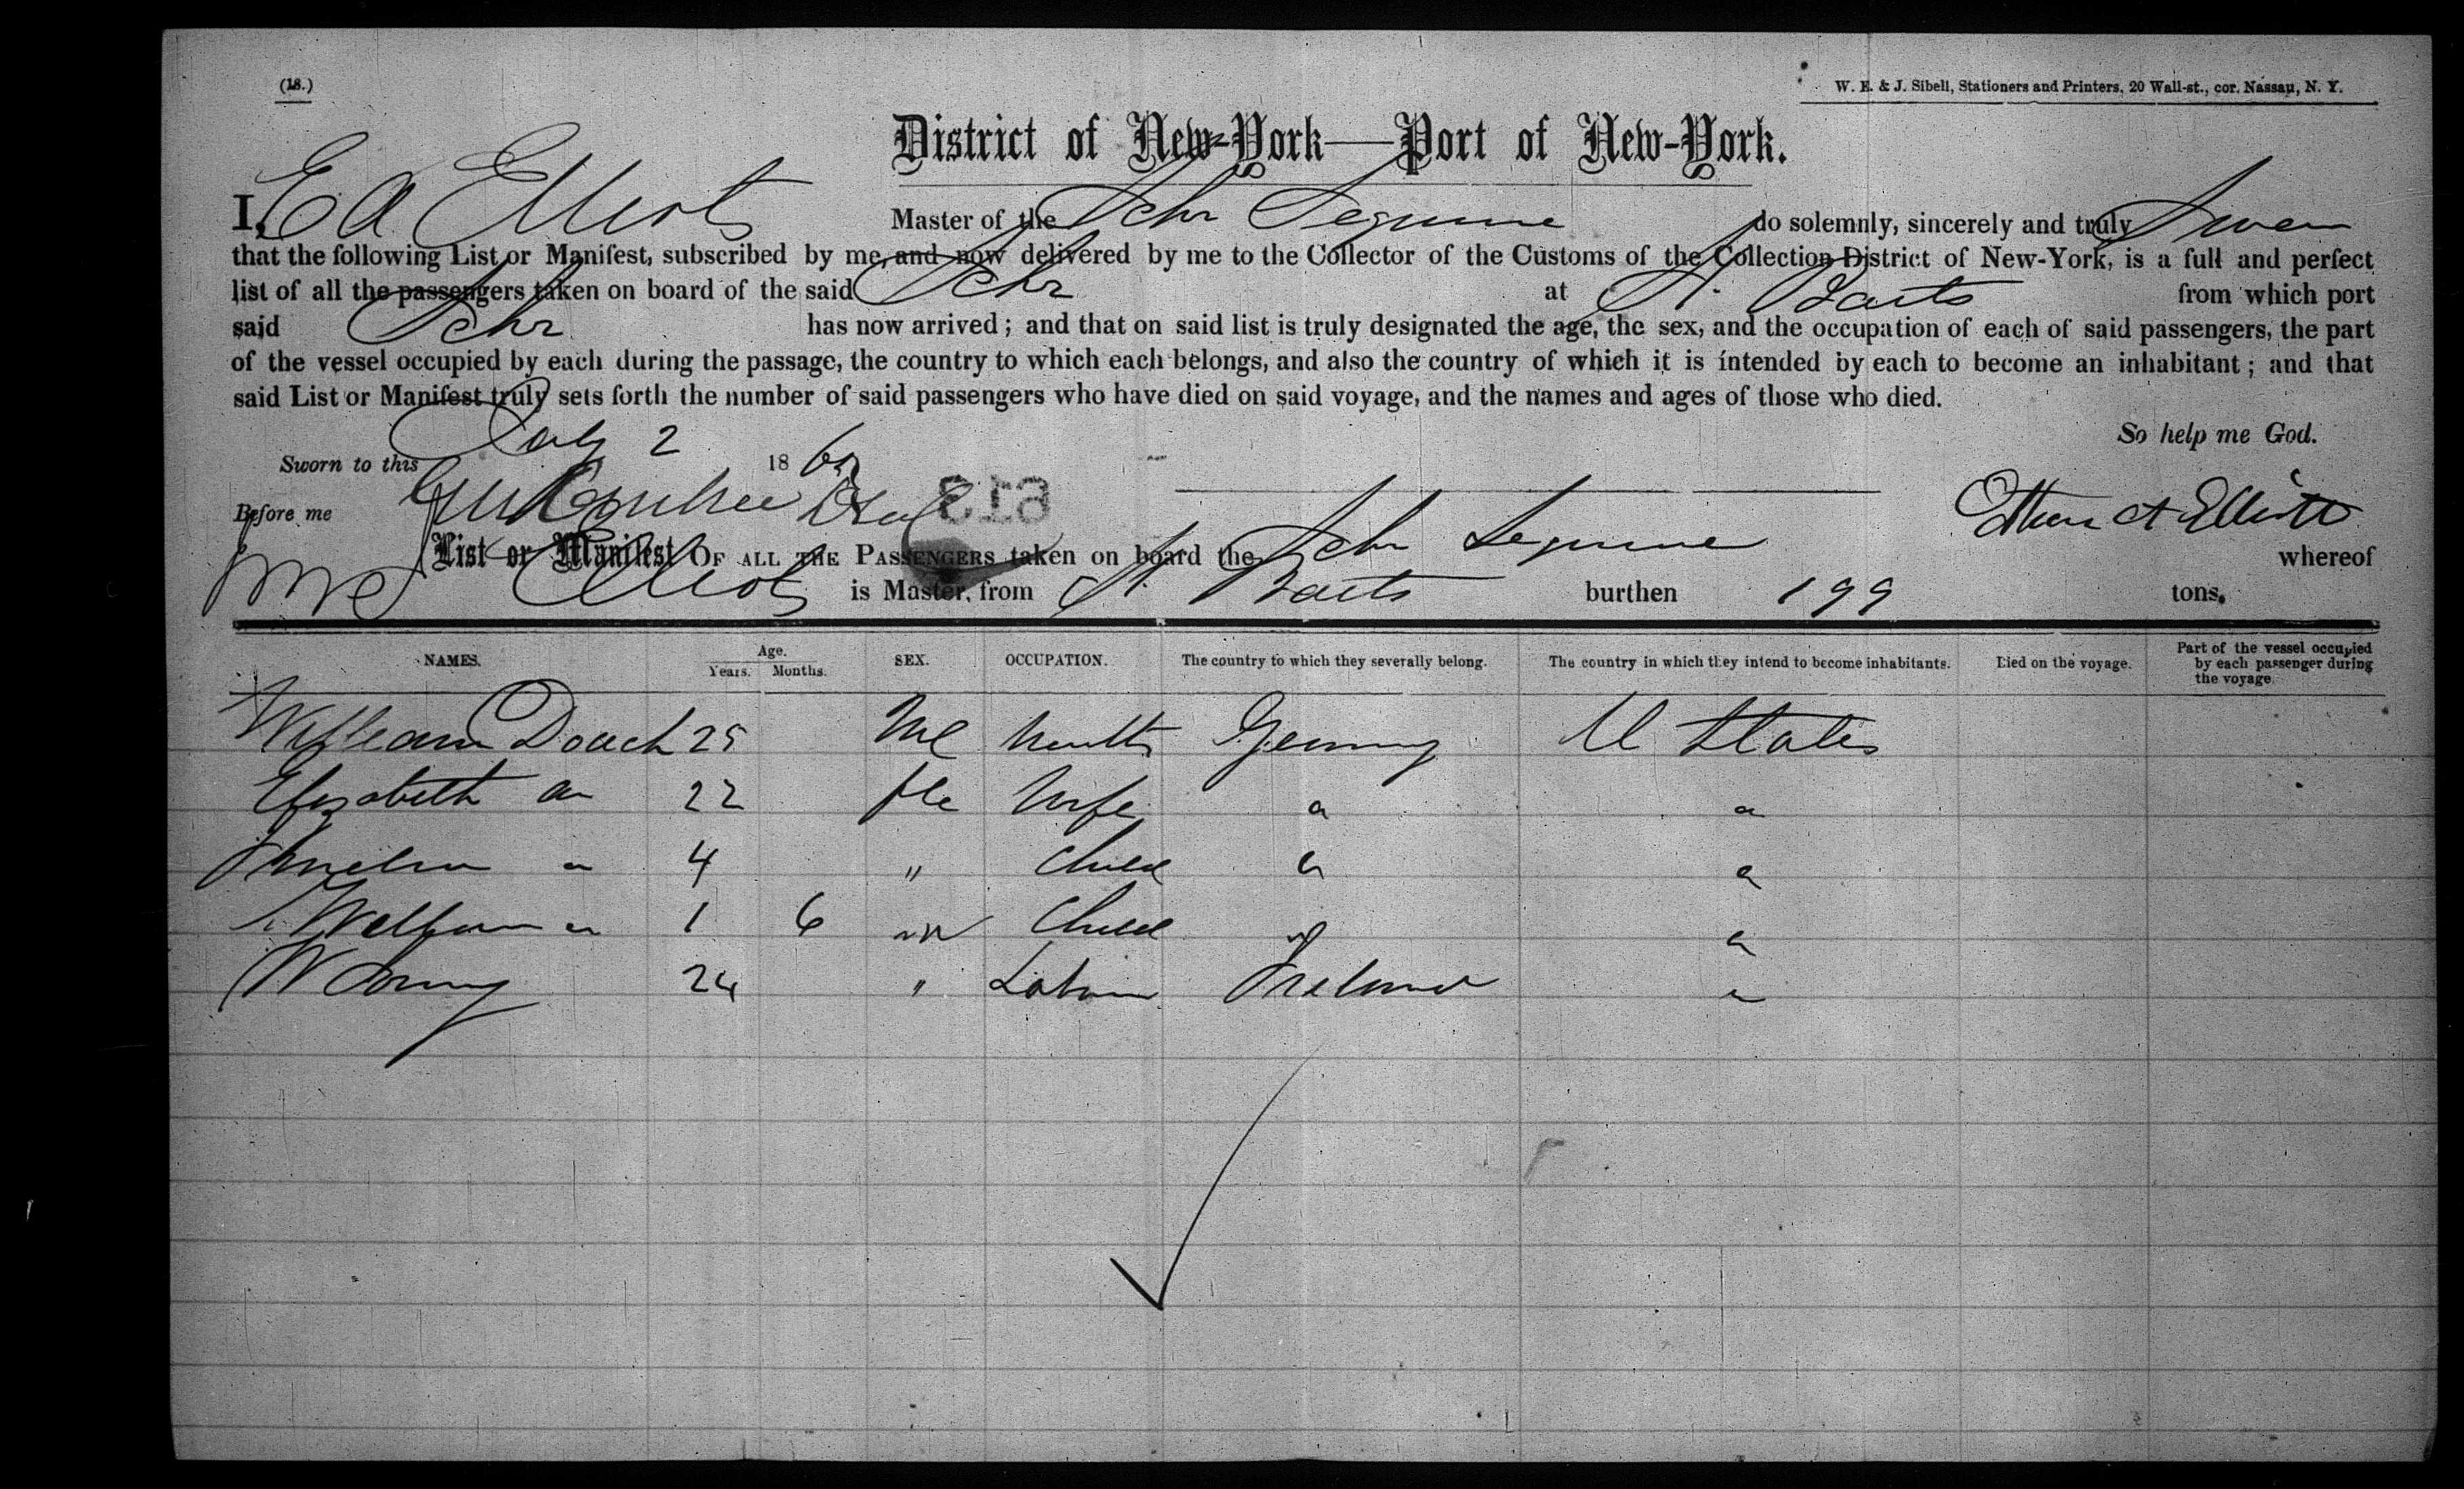 (18.)
W. E. & J. Sibell, Stationers and Printers, 20 Wall-st., cor. Nassau, N. Y.
District of New-York—Port of New-York.
I, E A Elliott Master of the Schr do solemnly, sincerely and truly Swear
that the following List or Manifest, subscribed by me, and now delivered by me to the Collector of the Customs of the Collection District of New-York, is a full and perfect
list of all the passengers taken on board of the said Schr at St. Barts from which port
said Schr has now arrived; and that on said list is truly designated the age, the sex, and the occupation of each of said passengers, the part
of the vessel occupied by each during the passage, the country to which each belongs, and also the country of which it is intended by each to become an inhabitant; and that
said List or Manifest truly sets forth the number of said passengers who have died on said voyage, and the names and ages of those who died.
So help me God.
Sworn to this July 2 18
Before me
Elliott
List or Manifest OF ALL THE PASSENGERS taken on board the Schr whereof
Elliott is Master, from St. Barts burthen 199 tons.
NAMES. Age. Years. Months. SEX. OCCUPATION. The country to which they severally belong. The country in which they intend to become inhabitants. Died on the voyage. Part of the vessel occupied by each passenger during the voyage
William Doach 25 Ml Germy U States
Elizabeth 22 fle Wife
4 " Child
1 6 Child
24 " Labour Ireland